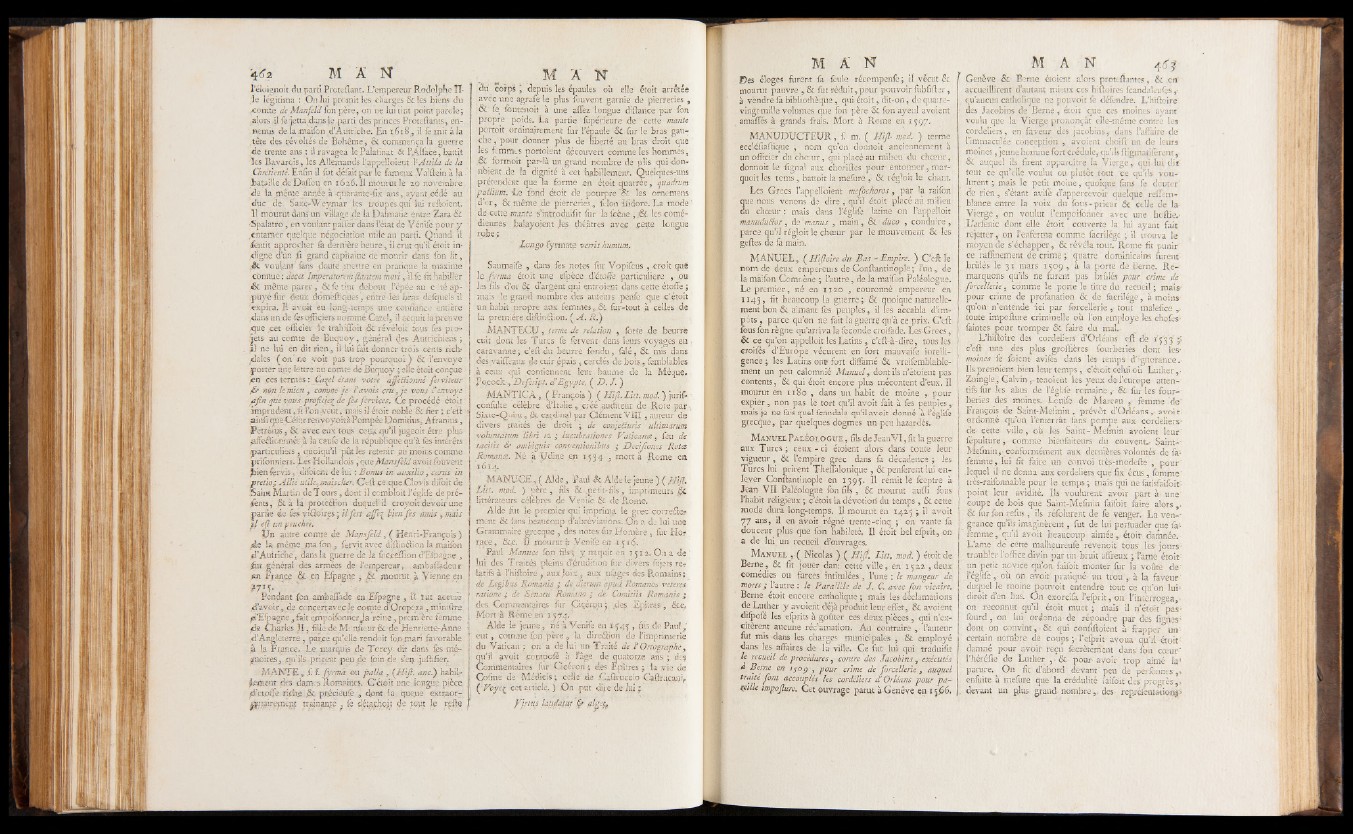 462 M A N
l'éloignoit du parti Protestant. L'empereur Rodolphe II
le légitima : On lui promit les charges & les biens du
comte de Mansfeld son père, on ne lui tint point parole;
alors il se jetta dans le parti des princes Protestans, en-
nemis de la maison d'Autriche. En 1618, il se mit à la
tête des révoltés de Bohême, & commença la guerre
de trente ans : il ravagea le Palatinat & l'Alsace, battit
les Bavarois, les Allemands l'appelloient l'Attila de la
Chrétienté. Enfin il fut défait par le fameux Valstein à la
bataille de Dassou en 1626. Il mourut le 20 novembre
de la même année à quarante-six ans, ayant cédé au
duc de Saxe-Weymar les troupes qui lui restoient.
Il mourut dans un village de la Dalmatie entre Zara &
Spalatro, en voulant passer dans l'état de Venise pour y
entamer quelque négociation utile au parti. Quand il
sentit approcher sa dernière heure, il crut qu'il étoit in-
digne d'un si grand capitaine de mourir dans son lit,
& voulant sans doute mettre en pratique la maxime
connue : decet Imperatorem stantem mori, il se fit habiller
& même parer, & se tint debout l'épée au côté ap-
puyé sur deux domestiques, entre les bras desquels il
expira. Il avoit eu long-temps une confiance entière
dans un de ses officiers nommé Cazel, il acquit la preuve
que cet officier le trahissoit & révéloit tous ses pro-
jets au comte de Bucquoy, général des Autrichiens ;
il ne lui en dit rien, il lui fait donner trois cents rich-
dales ( on ne voit pas trop pourquoi ) & l'envoye
porter une lettre au comte de Bucquoy ; elle étoit conçue
en ces termes : Cazel étant votre affectionné serviteur
& non le mien, comme je l'avois cru, je vous l'envoye
afin que vous profitiez de ses services. Ce procédé étoit
imprudent, si l'on veut, mais il étoit noble & fier ; c'est
ainsi que César renvoyoit à Pompée Domitius, Afranius,
Petréius, & avec eux tous ceux qu'il jugeoit être plus
affectionnés à la cause de la république qu'à ses intérêts
particuliers, quoiqu'il pût les retenir au moins comme
prisonniers. Les Hollandois, que Mansfeld avoit souvent
bien servis, disoient de lui : Bonus in auxilio, carus in
pretio; Allié utile, mais cher. C'est ce que Clovis disoit de
Saint Martin de Tours, dont il combloit l'église de pré-
sents, & à la protection duquel il croyoit devoir une
partie de ses victoires : il sert assez bien ses amis, mais
il est un peu cher.
Un autre comte de Mansfeld, ( Henri-François )
de la même maison, servit avec distinction la maison
d'Autriche, dans la guerre de la succession d'Espagne,
fut général des armées de l'empereur, ambassadeur
en France & en Espagne, & mourut à Vienne en
1715.
Pendant son ambassade en Espagne, il fut accusé
d'avoir, de concert avec le comte d'Oropeza, ministre
d'Espagne, fait empoisonner la reine, première femme
de Charles II, fille de Monsieur & de Henriette-Anne
d'Angleterre, parce qu'elle rendoit son mari favorable
à la France. Le marquis de Torcy dit dans ses mé-
moires, qu'ils prirent peu de soin de s'en justifier.
MANTE, s. f. syrma ou palla, ( Hist. anc. ) habil-
lement des dames Romaines. C'étoit une longue pièce
d'étoffe riche & précieuse, dont la queue extraor-
dinairement traînante, se détachoit de tout le reste
M A N
du corps, depuis les épaules où elle étoit arrêtée
avec une agrafe le plus souvent garnie de pierreries,
& se soutenoit à une assez longue distance par son
propre poids. La partie supérieure de cette mante
portoit ordinairement sur l'épaule & sur le bras gau-
che, pour donner plus de liberté au bras droit que
les femmes portoient découvert comme les hommes,
& formoit par-là un grand nombre de plis qui don-
noient de la dignité à cet habillement. Quelques-uns
prétendent que la forme en étoit quarrée, quadrum
pallium. Le fond étoit de pourpre & les ornemens
d'or, & même de pierreries, selon Isidore. La mode
de cette mante s'introduisit sur la scène, & les comé-
diennes balayoient les théâtres avec cette longue
robe ;
Longo syrmate verrit humum.
Saumaise, dans ses notes sur Vopiscus, croit que
le syrma étoit une espèce d'étoffe particulière, ou
les fils d'or & d'argent qui entroient dans cette étoffe ;
mais le grand nombre des auteurs pense que c'étoit
un habit propre aux femmes, & sur-tout à celles de
la première distinction. ( A. R. )
MANTECU, terme de relation, sorte de beurre
cuit dont les Turcs se servent dans leurs voyages en
caravanne; c'est du beurre fondu, salé, & mis dans
des vaisseaux de cuir épais, cerclés de bois, semblables
à ceux qui contiennent leur baume de la Méque.
Pocock, Descript. d'Egypte. ( D. J. )
MANTICA, ( François ) ( Hist. Litt. mod. ) juris-
consulte célèbre d'Italie, créé auditeur de Rote par
Sixte-Quint, & cardinal par Clément VIII ; auteur de
divers traités de droit ; de conjecturis ultimarum
voluntatum libri 12 ; lucubrationes Vaticanæ, seu de
tacitis & ambiguis conventionibus ; Decisiones Rotæ
Romanæ. Né à Udine en 1534, mort à Rome en
1614.
MANUCE, ( Alde, Paul & Alde le jeune ) ( Hist.
Litt. mod. ) père, fils & petit-fils, imprimeurs &
littérateurs célèbres de Venise & de Rome.
Alde fut le premier qui imprima le grec correcte-
ment & sans beaucoup d'abréviations. On a de lui une
Grammaire grecque, des notes sur Homère, sur Ho-
race, &c. Il mourut à Venise en 1516.
Paul Manuce son fils, y naquit en 1512. On a de
lui des Traités pleins d'érudition sur divers sujets re-
latifs à l'histoire, aux loix, aux usages des Romains;
de Legibus Romanis ; de dierum apud Romanos veteres
ratione ; de Senatu Romano ; de Comitiis Romanis ;
des Commentaires sur Cicéron ; des Epîtres, &c.
Mort à Rome en 1574.
Alde le jeune, né à Venise en 1545, fils de Paul,
eut, comme son père, la direction de l'imprimerie
du Vatican ; on a de lui un Traité de l'Ortographe,
qu'il avoit composé à l'âge de quatorze ans ; des
Commentaires sur Cicéron ; des Epîtres ; la vie de
Cosme de Médicis ; celle de Castruccio Castracani,
( Voyez cet article. ) On put dire de lui ;
Virtus laudatur & alget,
M A N
Des éloges furent sa seule récompense ; il vécut &
mourut pauvre, & fut réduit, pour pouvoir subsister,
à vendre sa bibliothèque, qui étoit, dit-on, de quatre-
vingt mille volumes que son père & son ayeul avoient
amassés à grands frais. Mort à Rome en 1597.
MANUDUCTEUR, s. m. ( Hist. mod. ) terme
ecclésiastique, nom qu'on donnoit anciennement à
un officier du chœur, qui placé au milieu du chœur,
donnoit le signal aux choristes pour entonner, mar-
quoit les tems, battoit la mesure, & régloit le chant.
Les Grecs l'appelloient mesochoros, par la raison
que nous venons de dire, qu'il étoit placé au milieu
du chœur : mais dans l'église latine on l'appelloit
manuductor, de manus, main, & duco, conduire,
parce qu'il régloit le chœur par le mouvement & les
gestes de sa main.
MANUEL, ( Histoire du Bas-Empire. ) C'est le
nom de deux empereurs de Constantinople; l'un, de
la maison Comnène ; l'autre, de la maison Paléologue.
Le premier, né en 1120, couronné empereur en
1143, fit beaucoup la guerre ; & quoique naturelle-
ment bon & aimant ses peuples, il les accabla d'im-
pôts, parce qu'on ne fait la guerre qu'à ce prix. C'est
sous son règne qu'arriva la seconde croisade. Les Grecs,
& ce qu'on appelloit les Latins, c'est-à-dire, tous les
croisés d'Europe vécurent en fort mauvaise intelli-
gence ; les Latins ont fort diffamé & vraisemblable-
ment un peu calomnié Manuel, dont ils n'étoient pas
contents, & qui étoit encore plus mécontent d'eux. Il
mourut en 1180, dans un habit de moine, pour
expier, non pas le tort qu'il avoit fait à ses peuples,
mais je ne sais quel scandale qu'il avoit donné à l'église
grecque, par quelques dogmes un peu hazardés.
MANUEL PALÉOLOGUE, fils de Jean VI, fit la guerre
aux Turcs ; ceux-ci étoient alors dans toute leur
vigueur, & l'empire grec dans sa décadence ; les
Turcs lui prirent Thessalonique, & pensèrent lui en-
lever Constantinople en 1395. Il remit le sceptre à
Jean VII Paléologue son fils, & mourut aussi sous
l'habit religieux ; c'étoit la dévotion du temps, & cette
mode dura long-temps. Il mourut en 1425 ; il avoit
77 ans, il en avoit régné trente-cinq ; on vante sa
douceur plus que son habileté. Il étoit bel esprit, on
a de lui un recueil d'ouvrages.
MANUEL, ( Nicolas ) ( Hist. Litt. mod. ) étoit de
Berne, & fit jouer dans cette ville, en 1522, deux
comédies ou farces intitulées, l'une : le mangeur de
morts ; l'autre : le Parallèle de J. C. avec son vicaire.
Berne étoit encore catholique ; mais les déclamations
de Luther y avoient déjà produit leur effet, & avoient
disposé les esprits à goûter ces deux pièces, qui n'en-
chérent aucune réclamation. Au contraire, l'auteur
fut mis dans les charges municipales, & employé
dans les affaires de la ville. Ce fut lui qui traduisit
le recueil de procédures, contre des Jacobins, exécutés
à Berne en 1509, pour crime de sorcellerie, auquel
traité sont accouplés les cordéliers d'Orléans pour pa-
reille imposture. Cet ouvrage parut à Genève en 1566.
M A N 463
Genève & Berne étoient alors protestantes, & on
accueillirent d'autant mieux ces histoires scandaleuses,
qu'aucun catholique ne pouvoit se défendre. L'histoire
des Jacobins de Berne, étoit que ces moines ayant
voulu que la Vierge prononçât elle-même contre les
cordeliers, en faveur des jacobins, dans l'affaire de
l'immaculée conception, avoient choisi un de leurs
moines, jeune homme fort crédule, qu'ils stigmatisèrent,
& auquel ils firent apparoître la Vierge, qui lui dit
tout ce qu'elle voulut ou plutôt tout ce qu'ils vou-
lurent ; mais le petit moine, quoique sans se douter
de rien, s'étant avisé d'appercevoir quelque ressem-
blance entre la voix du sous-prieur & celle de la
Vierge, on voulut l'empoisonner avec une hostie.
L'arsenic dont elle étoit couverte la lui ayant fait
rejetter, on l'enferma comme sacrilège ; il trouva le
moyen de s'échapper, & révéla tout. Rome fit punir
ce raffinement de crime ; quatre dominicains furent
brûlés le 31 mars 1509, à la porte de Berne. Re-
marquons qu'ils ne furent pas brûlés pour crime de
sorcellerie, comme le porte le titre du recueil ; mais
pour crime de profanation & de sacrilège, à moins
qu'on n'entende ici par sorcellerie, tout maléfice,
toute imposture criminelle où l'on employe les choses
saintes pour tromper & faire du mal.
L'histoire des cordeliers d'Orléans est de 1533 ;
c'est une des plus grossières fourberies dont les
moines se soient avisés dans les temps d'ignorance.
Ils prenoient bien leur temps, c'étoit celui où Luther,
Zuingle, Calvin, tenoient les yeux de l'europe atten-
tifs sur les abus de l'église romaine, & sur les four-
beries des moines. Louise de Mareau, femme de
François de Saint-Mesmin, prévôt d'Orléans, avoit
ordonné qu'on l'enterrât sans pompe aux cordeliers
de cette ville, où les Saint-Mesmin avoient leur
sépulture, comme bienfaiteurs du couvent. Saint-
Mesmin, conformément aux dernières volontés de sa
femme, lui fit faire un convoi très-modeste, pour
lequel il ne donna aux cordeliers que six écus, somme
très-raisonnable pour le temps ; mais qui ne satisfaisoit
point leur avidité. Ils voulurent avoir part à une
coupe de bois que Saint-Mesmin faisoit faire alors,
& sur son refus, ils résolurent de se venger. La ven-
geance qu'ils imaginèrent, fut de lui persuader que sa
femme, qu'il avoit beaucoup aimée, étoit damnée.
L'ame de cette malheureuse revenoit tous les jours
troubler l'office divin par un bruit affreux ; l'ame étoit
un petit novice qu'on faisoit monter sur la voûte de
l'église, où on avoit pratiqué un trou, à la faveur
duquel le moine pouvoit entendre tout ce qu'on lui
diroit d'en bas. On exorcisa l'esprit, on l'interrogea,
on reconnut qu'il étoit muet ; mais il n'étoit pas
sourd, on lui ordonna de répondre par des signes
dont on convint, & qui consistoient à frapper un
certain nombre de coups ; l'esprit avoua qu'il étoit
damné pour avoir reçu secrètement dans son cœur
l'hérésie de Luther, & pour avoir trop aimé la
parure. On fit d'abord devant peu de personnes,
ensuite à mesure que la crédulité faisoit des progrès,
devant un plus grand nombre, des représentations